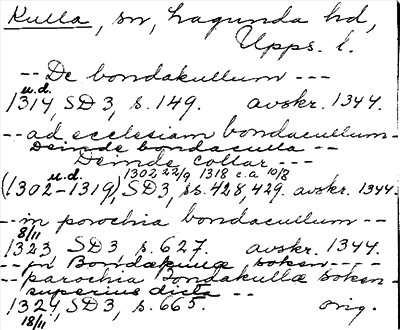 Kulla, sn, Lagunda hd,
Upps. l.
-- De bondakullum ---
u.d.
1314, SD 3, s. 149. avskr. 1344.
-- ad ecclesiam bondacullum -
Deinde bondaculla --
Deinde collar ---
u.d. 1302 22/9 1318 c.a 10/8
(1302-1319), SD 3, ss. 428, 429. avskr. 1344.
-- in porochia bondacullum --
8/11
1323, SD 3, s. 627. avskr. 1344.
-- in Bondækullæ soken ----
-- parochia Bondakullæ soken -
superius dicta --
1324, SD 3, s. 665. orig.
18/11